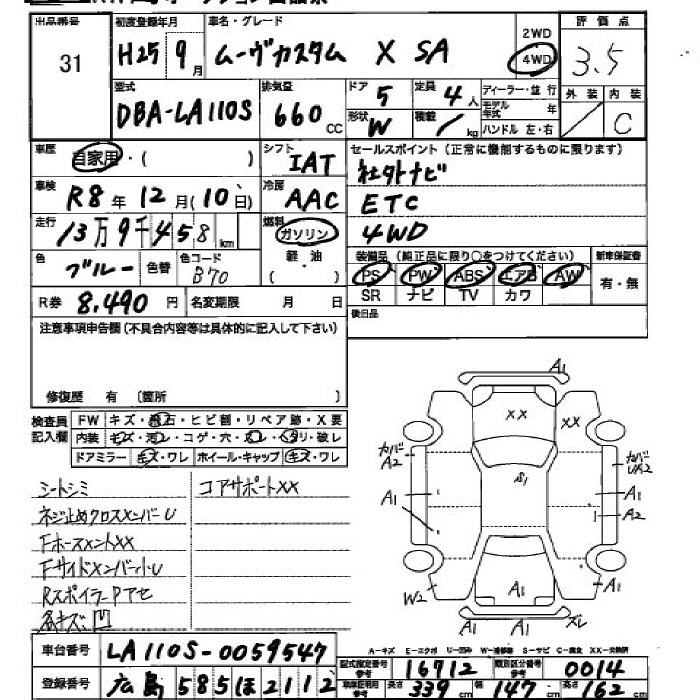 出品番号 31
初度登録年月 H25年 9月
車名・グレード ムーヴカスタム X SA
2WD
4WD
評価点 3.5
外装 / 内装 C
型式 DBA-LA110S
排気量 660 CC
ドア 5
定員 4人
形状 W
積載 / kg
ディーラー・並行
モデル年式 年
ハンドル 左・右
車歴 自家用・( )
シフト IAT
セールスポイント (正常に機能するものに限ります)
社外ナビ
ETC
4WD
車検 R8年 12月(10日)
冷房 AAC
走行 13万9千458km
燃料 ガソリン
軽・油
( )
色 ブルー 色替
色コード B70
装備品 (純正品に限り○をつけてください) 新車保証書
PS PW ABS エアB AW 有・無
SR ナビ TV カワ
R券 8.490円 名変期限 月 日
後日品
注意事項申告欄(不具合内容等は具体的に記入して下さい)
修復歴 有 [箇所 ]
検査員記入欄
FW キズ・飛石・ヒビ割・リペア跡・X要
内装
ドアミラー キズ・ワレ ホイール・キャップ キズ・ワレ
シートシミ コアサポートXX
ネジ止めクロスメンバーU
FホースメントXX
Fサイドメンバー小U
RスポイラーPアセ
各キズ凹
A1
XX XX
カバーA2
A1
S1
カバーUA2
A1
A2
W2
A1
A1
A1
A1
ズレ
A-キズ E-エクボ U-凹み W-補修跡 S-サビ C-腐食 XX-交換済
車台番号 LA110S-0059547
型式指定番号 参考 16712 類別区分番号 参考 0014
登録番号 広島 585 ほ 2112
長さ 339cm 幅 147cm 高さ 162cm